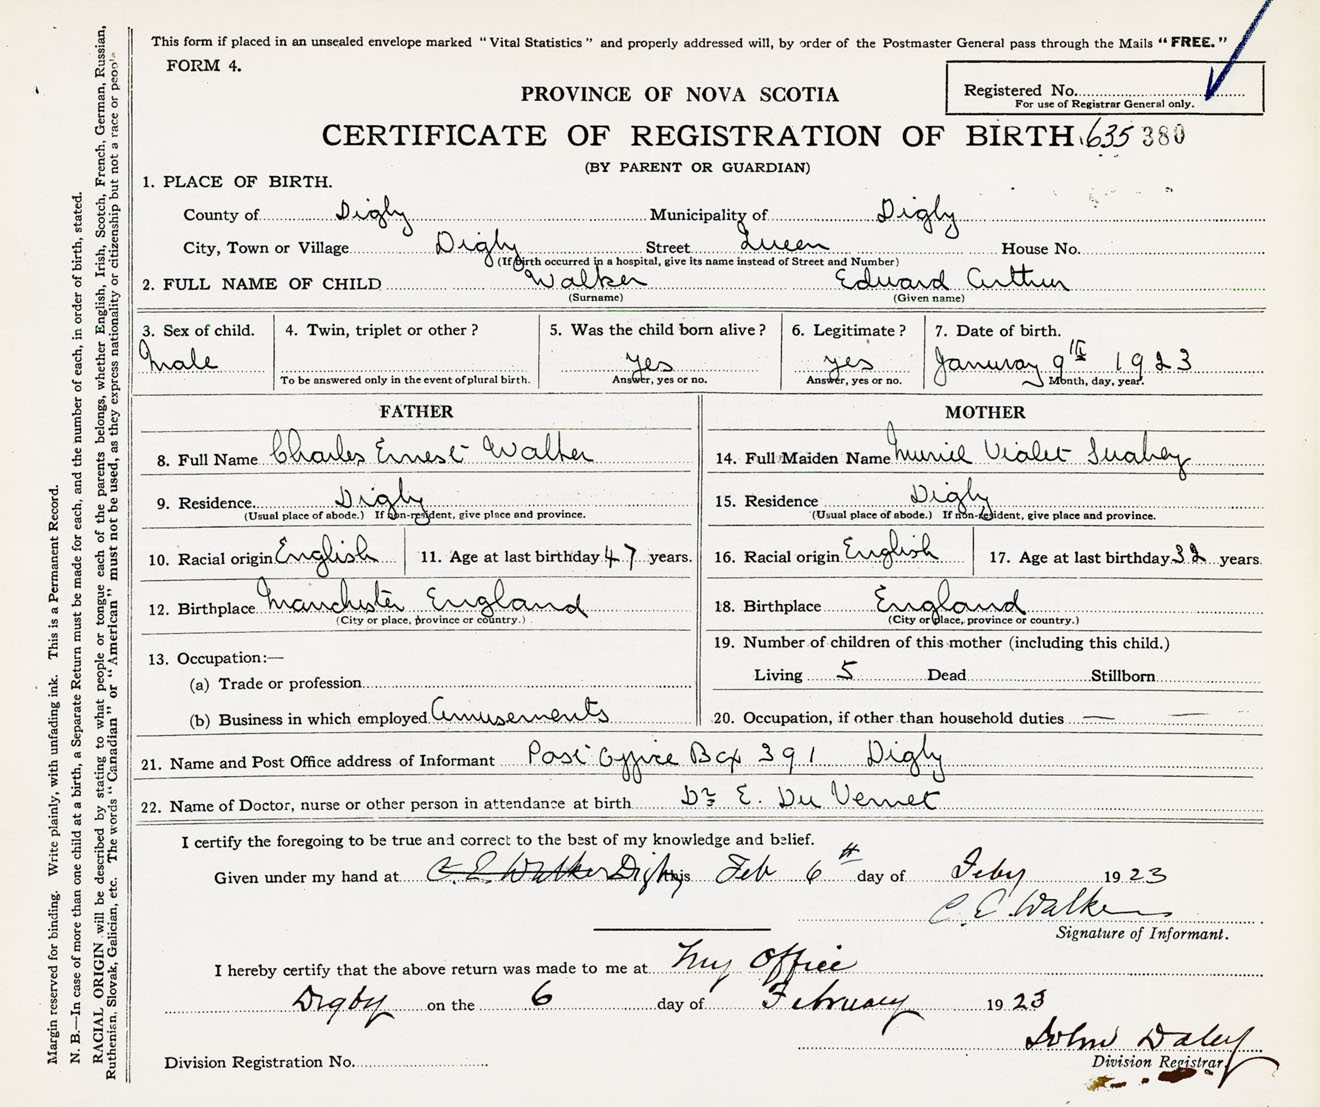 This form if placed in an unsealed envelope marked "Vital Statistics" and properly addressed will, by order of the Postmaster General pass through the Mails "FREE."
FORM 4.
Registered No.
For use of Registrar General only.
PROVINCE OF NOVA SCOTIA
CERTIFICATE OF REGISTRATION OF BIRTH 635 380
(BY PARENT OR GUARDIAN)
1. PLACE OF BIRTH.
County of Digby Municipality of Digby
City, Town or Village Digby Street Queen House No.
(If birth occurred in a hospital, give its name instead of Street and Number)
2. FULL NAME OF CHILD Walker Edward Arthur
(Surname) (Given name)
3. Sex of child. 4. Twin, triplet or other? 5. Was the child born alive? 6. Legitimate? 7. Date of birth.
Male yes yes January 9th 1923
To be answered only in the event of plural birth. Answer, yes or no. Answer, yes or no. Month, day, year.
FATHER MOTHER
8. Full Name Charles Ernest Walker 14. Full Maiden Name Muriel Violet
9. Residence Digby 15. Residence Digby
(Usual place of abode.) If non-resident, give place and province. (Usual place of abode.) If non-resident, give place and province.
10. Racial origin English 11. Age at last birthday 47 years. 16. Racial origin English 17. Age at last birthday 32 years.
12. Birthplace Manchester England 18. Birthplace England
(City or place, province or country.) (City or place, province or country.)
13. Occupation:— 19. Number of children of this mother (including this child.)
(a) Trade or profession Living 5 Dead Stillborn
(b) Business in which employed Amusements 20. Occupation, if other than household duties —
21. Name and Post Office address of Informant Post Office Box 391 Digby
22. Name of Doctor, nurse or other person in attendance at birth Dr E. Du Vernet
I certify the foregoing to be true and correct to the best of my knowledge and belief.
Given under my hand at C. E. Walker Digby this Feb 6th day of Feby 1923
C. E. Walker
Signature of Informant.
I hereby certify that the above return was made to me at my office
Digby on the 6 day of February 1923
John Daley
Division Registrar
Division Registration No.
Margin reserved for binding. Write plainly, with unfading ink. This is a Permanent Record.
N. B.—In case of more than one child at a birth, a Separate Return must be made for each, and the number of each, in order of birth, stated.
RACIAL ORIGIN will be described by stating to what people or tongue each of the parents belongs, whether English, Irish, Scotch, French, German, Russian,
Ruthenian, Slovak, Galician, etc. The words "Canadian" or "American" must not be used, as they express nationality or citizenship but not a race or people